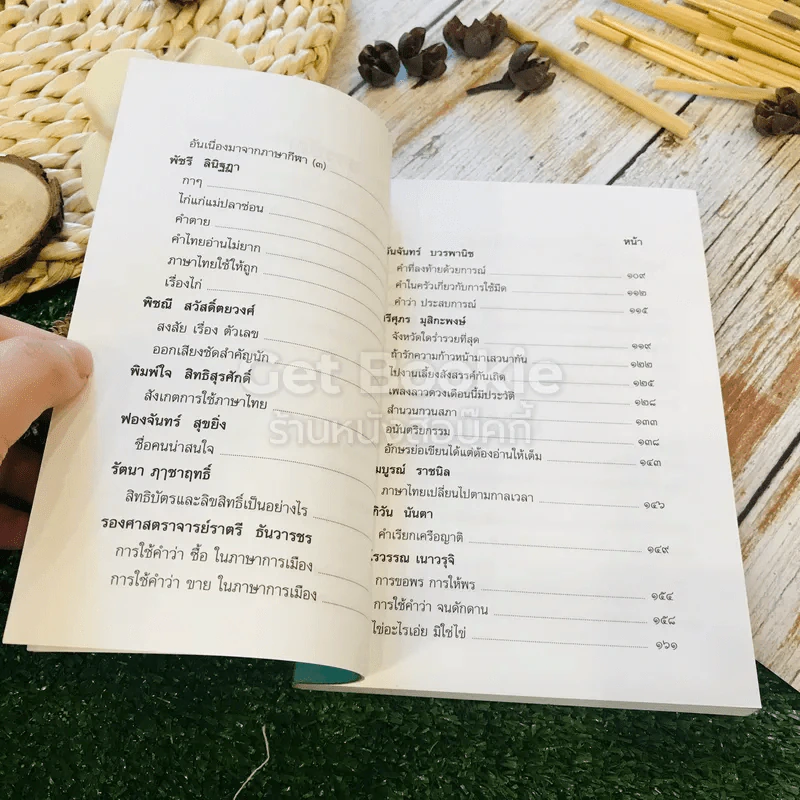 อันเนื่องมาจากภาษากีฬา (๓)
พัชรี ลินิฐฎา
กาๆ
ไก่แก่แม่ปลาช่อน
คำตาย
คำไทยอ่านไม่ยาก
ภาษาไทยใช้ให้ถูก
เรื่องไก่
พิชณี สวัสดิ์ตยวงศ์
สงสัย เรื่อง ตัวเลข
ออกเสียงชัดสำคัญนัก
พิมพ์ใจ สิทธิสุรศักดิ์
สังเกตการใช้ภาษาไทย
ฟองจันทร์ สุขยิ่ง
ชื่อคนน่าสนใจ
รัตนา ฦๅชาฤทธิ์
สิทธิบัตรและลิขสิทธิ์เป็นอย่างไร
รองศาสตราจารย์ราตรี ธันวารชร
การใช้คำว่า ซื้อ ในภาษาการเมือง
การใช้คำว่า ขาย ในภาษาการเมือง
หน้า
บวรพานิช
คำที่ลงท้ายด้วยการณ์ ๑๐๙
คำในครัวเกี่ยวกับการใช้มีด ๑๑๒
คำว่า ประสบการณ์ ๑๑๕
มุสิกะพงษ์
จังหวัดใดร่ำรวยที่สุด ๑๑๙
ถ้ารักความก้าวหน้ามาเสวนากัน ๑๒๒
ไปงานเลี้ยงสังสรรค์กันเถิด ๑๒๕
เพลงลาวดวงเดือนนี้มีประวัติ ๑๒๘
สำนวนกวนสภา ๑๓๓
อนันตริยกรรม ๑๓๘
อักษรย่อเขียนได้แต่ต้องอ่านให้เต็ม ๑๔๓
ราชนิล
ภาษาไทยเปลี่ยนไปตามกาลเวลา ๑๔๖
นันตา
คำเรียกเครือญาติ ๑๔๙
เนาวรุจิ
การขอพร การให้พร ๑๕๔
การใช้คำว่า จนดักดาน ๑๕๘
ไข่อะไรเอ่ย มิใช่ไข่ ๑๖๑
Get Bookie
ร้านหนังสือบุ๊คกี้